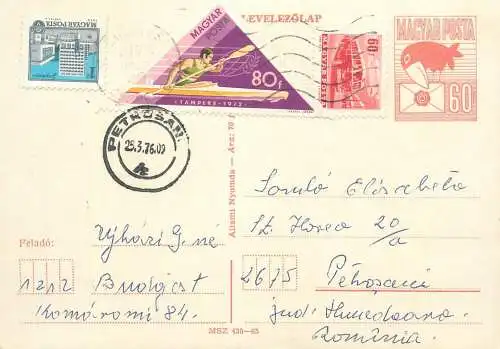 LEVELEZŐLAP
MAGYAR POSTA
MAGYAR
POSTA
80f
TAMPERE-1973
60
MAGYAR POSTA
MAGYAR POSTA
60
PETROSANI
25.3.76.09
Állami Nyomda — Ára: 70 f
Str. Horea 20/a
Feladó:
Ujházi G.né
1212 Budapest
Komáromi 84.
2675
Petroșani
jud. Hunedoara
România.
MSZ 439-65